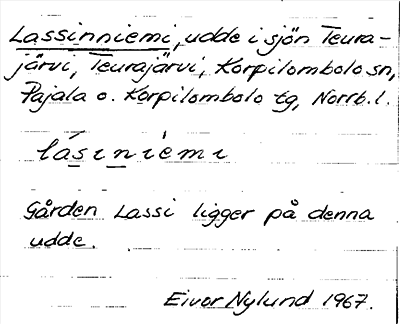 Lassinniemi, udde i sjön Teura-
järvi, Teurajärvi, Korpilombolo sn,
Pajala o. Korpilombolo tg, Norrb. l.
lásinièmi
Gården Lassi ligger på denna
udde.
Eivor Nylund 1967.